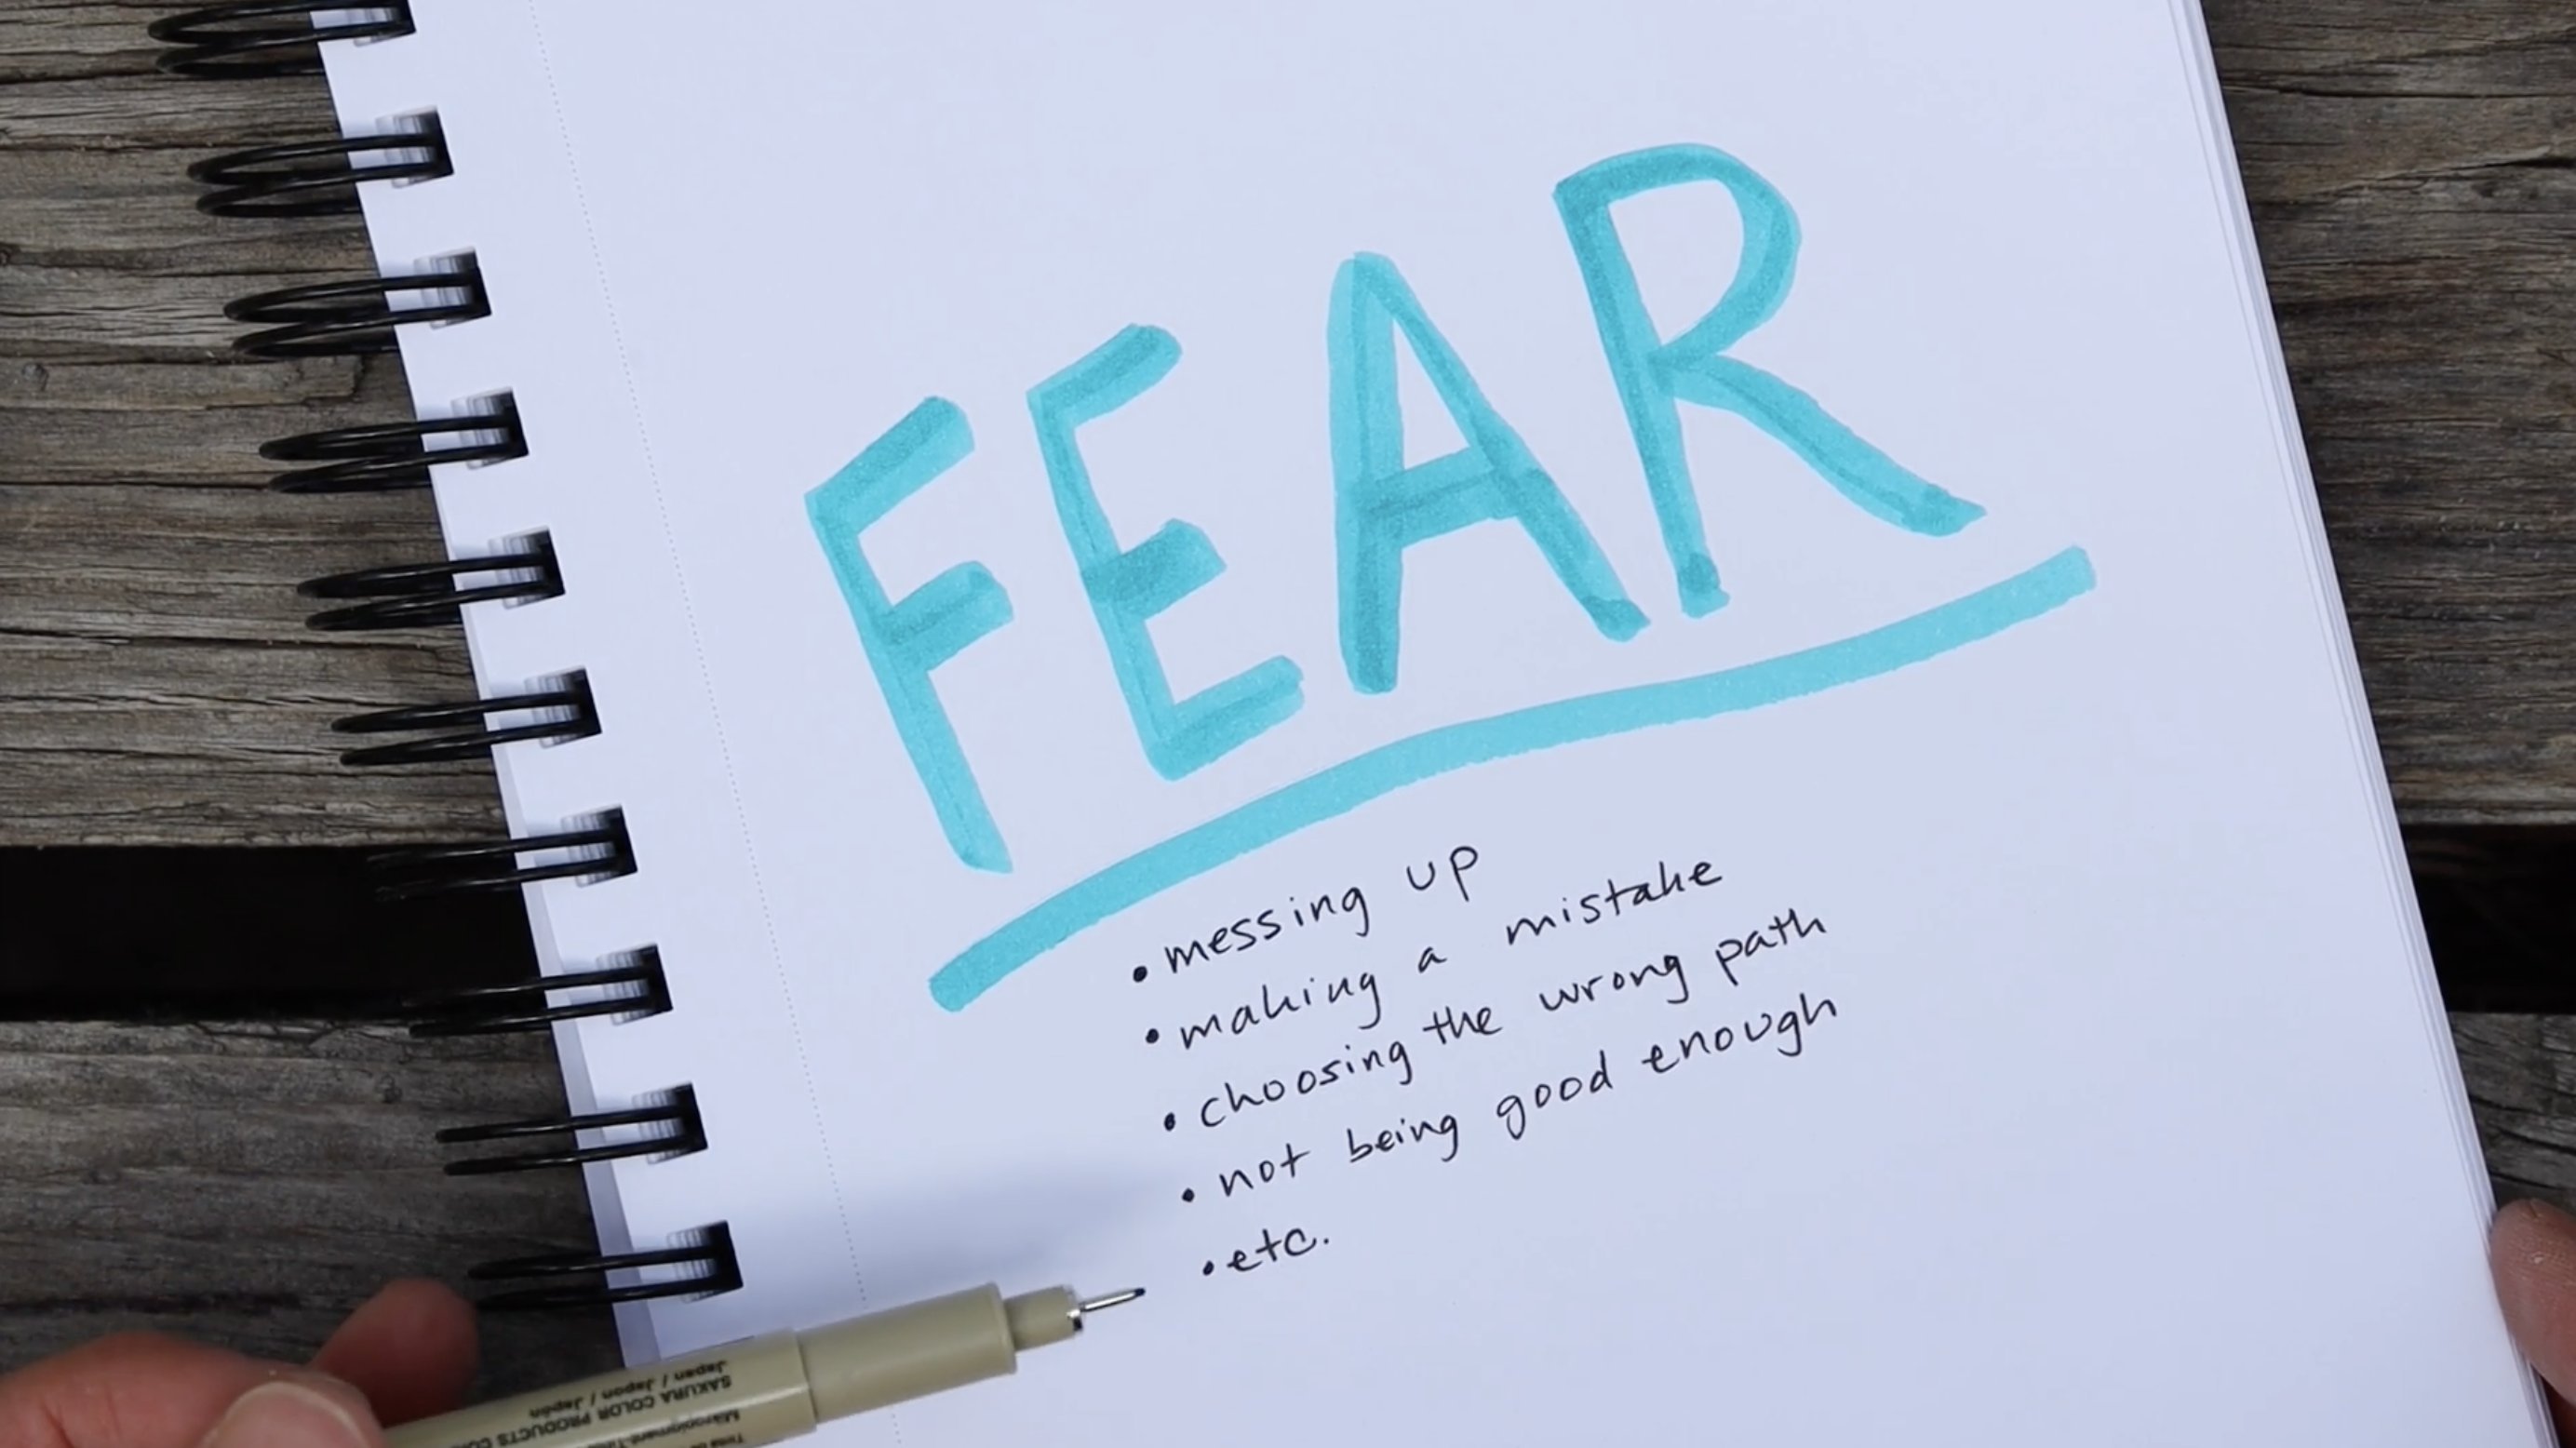 FEAR
• messing up
• making a mistake
• choosing the wrong path
• not being good enough
• etc.
SAKURA COLOR PRODUCTS
Japan / Japon / Japón